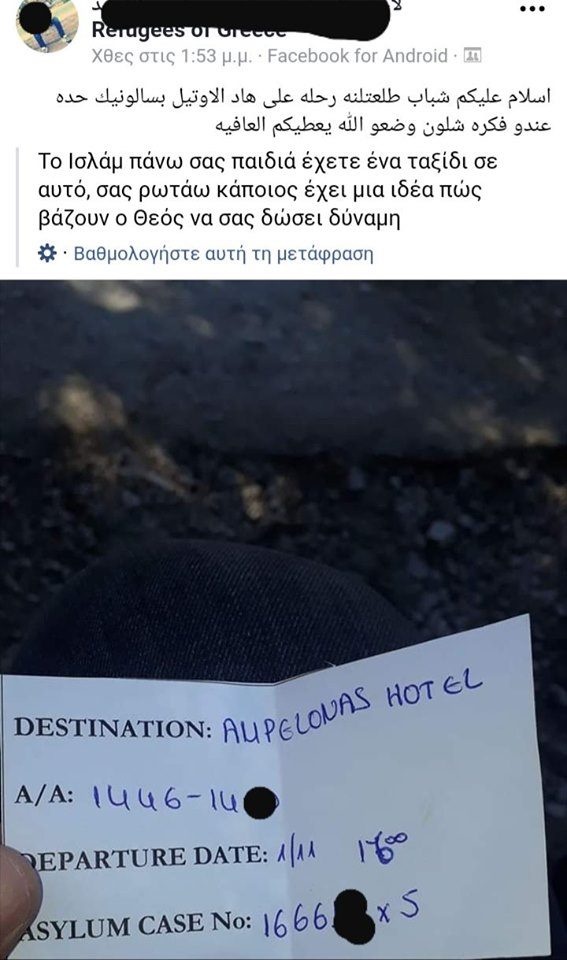 Refugees of Greece
Χθες στις 1:53 μ.μ. · Facebook for Android ·
اسلام عليكم شباب طلعتلنه رحله على هاد الاوتيل بسالونيك حده
عندو فكره شلون وضعو الله يعطيكم العافيه
Το Ισλάμ πάνω σας παιδιά έχετε ένα ταξίδι σε
αυτό, σας ρωτάω κάποιος έχει μια ιδέα πώς
βάζουν ο Θεός να σας δώσει δύναμη
· Βαθμολογήστε αυτή τη μετάφραση
DESTINATION: AMPELONAS HOTEL
A/A: 1446-14
DEPARTURE DATE: 1/11
ASYLUM CASE No: 1666 x 5